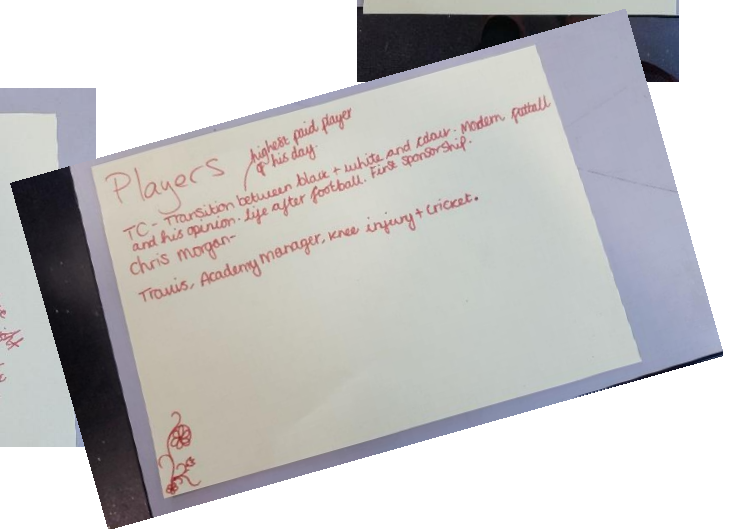 Players
highest paid player
of his day.
TC - Transition between black + white and colour. Modern football
and his opinion. life after football. First sponsorship.
Chris Morgan -
Travis, Academy Manager, knee injury + cricket.